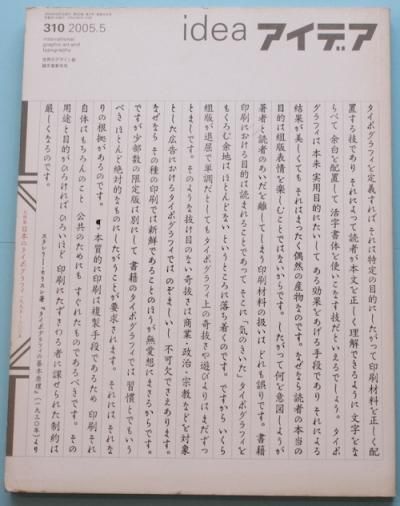 310 2005.5
international
graphic art and
typography
世界のデザイン誌
誠文堂新光社
idea アイデア
タイポグラフィを定義すれば それは特定の目的にしたがって印刷材料を正しく配
置する技であり それによって読者が本文を正しく理解できるように 文字をな
らべて 余白を配置して 活字書体を使いこなす技だといえるでしょう。タイポ
グラフィは 本来 実用目的にたいして ある効果をあげる手段であり それによる
結果が美しくても それはまったく偶然の産物なのです。なぜなら読者の本当の
目的は 組版表情を楽しむことではないからです。したがって何を意図しようが
著者と読者のあいだを離してしまう印刷材料の扱いは どれも誤りです。書籍
印刷における目的は読まれることであって そこに「気のきいた」タイポグラフィを
もくろむ余地は ほとんどない というところに落ち着くのです。ですから いくら
組版が退屈で単調だとしても タイポグラフィ上の奇抜さや遊びよりは まだずっ
とましです。そのような抜け目のない奇抜さは 商業・政治・宗教などを対象
とした広告におけるタイポグラフィでは のぞましいし 不可欠でさえあります。
なぜなら その種の印刷では新鮮であることのほうが 無愛想にまさるからです。
ですが少部数の限定版は別にして 書籍のタイポグラフィでは 習慣とでもいう
べき ほとんど絶対的なものにしたがうことが要求されます。それには それな
りの根拠があるのです。 ¶ 本質的に印刷は複製手段であるため 印刷 それ
自体はもちろんのこと 公共のためにも すぐれたものであるべきです。その
用途と目的がひろければ ひろいほど 印刷にたずさわる者に課せられた制約は
厳しくなるのです。
スタンリー・モリスン著『タイポグラフィの基本原理』(一九三〇年)より
日本のタイポグラフィ